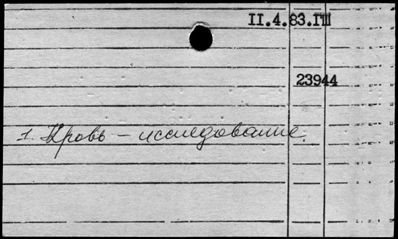 II.4.83.ГШ
23944
1. Кровь – исследование.